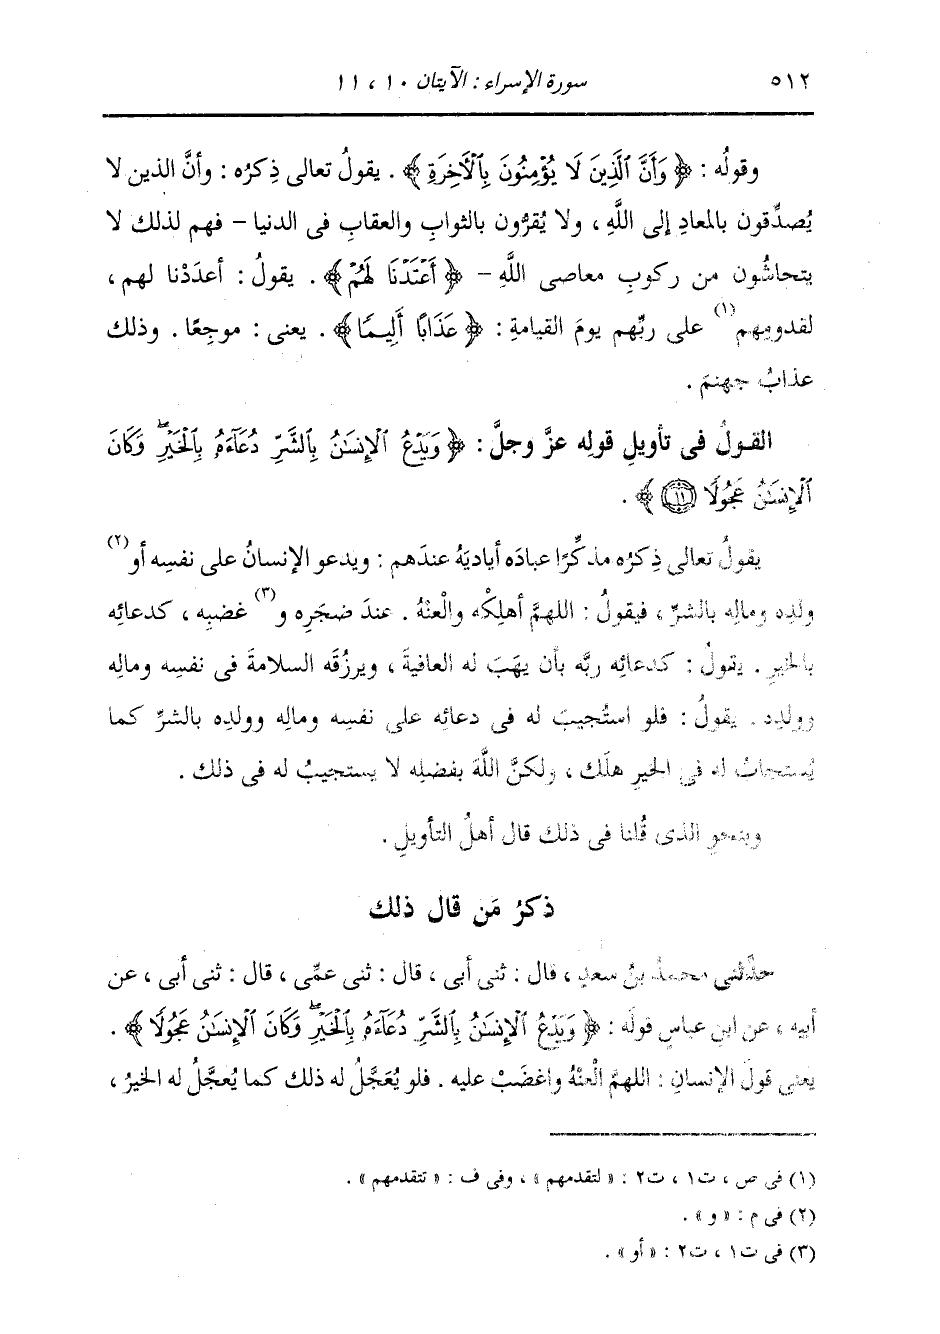 ٥١٢ سورة الإسراء : الآيتان ١٠ ، ١١
وقولُه : ﴿ وَأَنَّ ٱلَّذِينَ لَا يُؤْمِنُونَ بِٱلْأَخِرَةِ ﴾ . يقولُ تعالى ذِكرُه : وأنَّ الذين لا
يُصدِّقون بالمعادِ إلى اللَّهِ ، ولا يُقرُّون بالثوابِ والعقابِ فى الدنيا – فهم لذلك لا
يتحاشُون من ركوبِ معاصى اللَّهِ – ﴿ أَعْتَدْنَا لَهُمْ ﴾ . يقولُ : أعدَدْنا لهم ،
لقدومِهم(١) على ربِّهم يومَ القيامةِ : ﴿ عَذَابًا أَلِيمًا ﴾ . يعنى : موجِعًا . وذلك
عذابُ جهنمَ .
القولُ فى تأويلِ قولِه عزَّ وجلَّ : ﴿ وَيَدْعُ ٱلْإِنسَٰنُ بِٱلشَّرِّ دُعَآءَهُۥ بِٱلْخَيْرِۖ وَكَانَ
ٱلْإِنسَٰنُ عَجُولًا ﴿١١﴾ ﴾ .
يقولُ تعالى ذِكرُه مذكِّرًا عبادَه أياديَهُ عندَهم : ويدعو الإنسانُ على نفسِه أو(٢)
ولدِه ومالِه بالشرِّ ، فيقولُ : اللهمَّ أهلِكْه والْعنْهُ . عندَ ضجَرِه و(٣) غضبِه ، كدعائِه
بالخيرِ . يقولُ : كدعائِه ربَّه بأن يهَبَ له العافيةَ ، ويرزُقَه السلامةَ فى نفسِه ومالِه
وولدِه . يقولُ : فلو استُجيبَ له فى دعائِه على نفسِه ومالِه وولدِه بالشرِّ كما
يُستجابُ له فى الخيرِ هلَك ، ولكنَّ اللَّهَ بفضلِه لا يستجيبُ له فى ذلك .
وبنحوِ الذى قُلنا فى ذلك قال أهلُ التأويلِ .
ذكرُ مَن قال ذلك
حدَّثنى محمدُ بنُ سعدٍ ، قال : ثنى أبى ، قال : ثنى عمِّى ، قال : ثنى أبى ، عن
أبيه ، عن ابنِ عباسٍ قولَه : ﴿ وَيَدْعُ ٱلْإِنسَٰنُ بِٱلشَّرِّ دُعَآءَهُۥ بِٱلْخَيْرِۖ وَكَانَ ٱلْإِنسَٰنُ عَجُولًا ﴾ .
يعنى قولَ الإنسانِ : اللهمَّ الْعنْهُ واغضَبْ عليه . فلو يُعَجَّلُ له ذلك كما يُعجَّلُ له الخيرُ ،
(١) فى ص ، ت١ ، ت٢ : « لتقدمهم » ، وفى ف : « تتقدمهم » .
(٢) فى م : « و » .
(٣) فى ت١ ، ت٢ : « أو » .